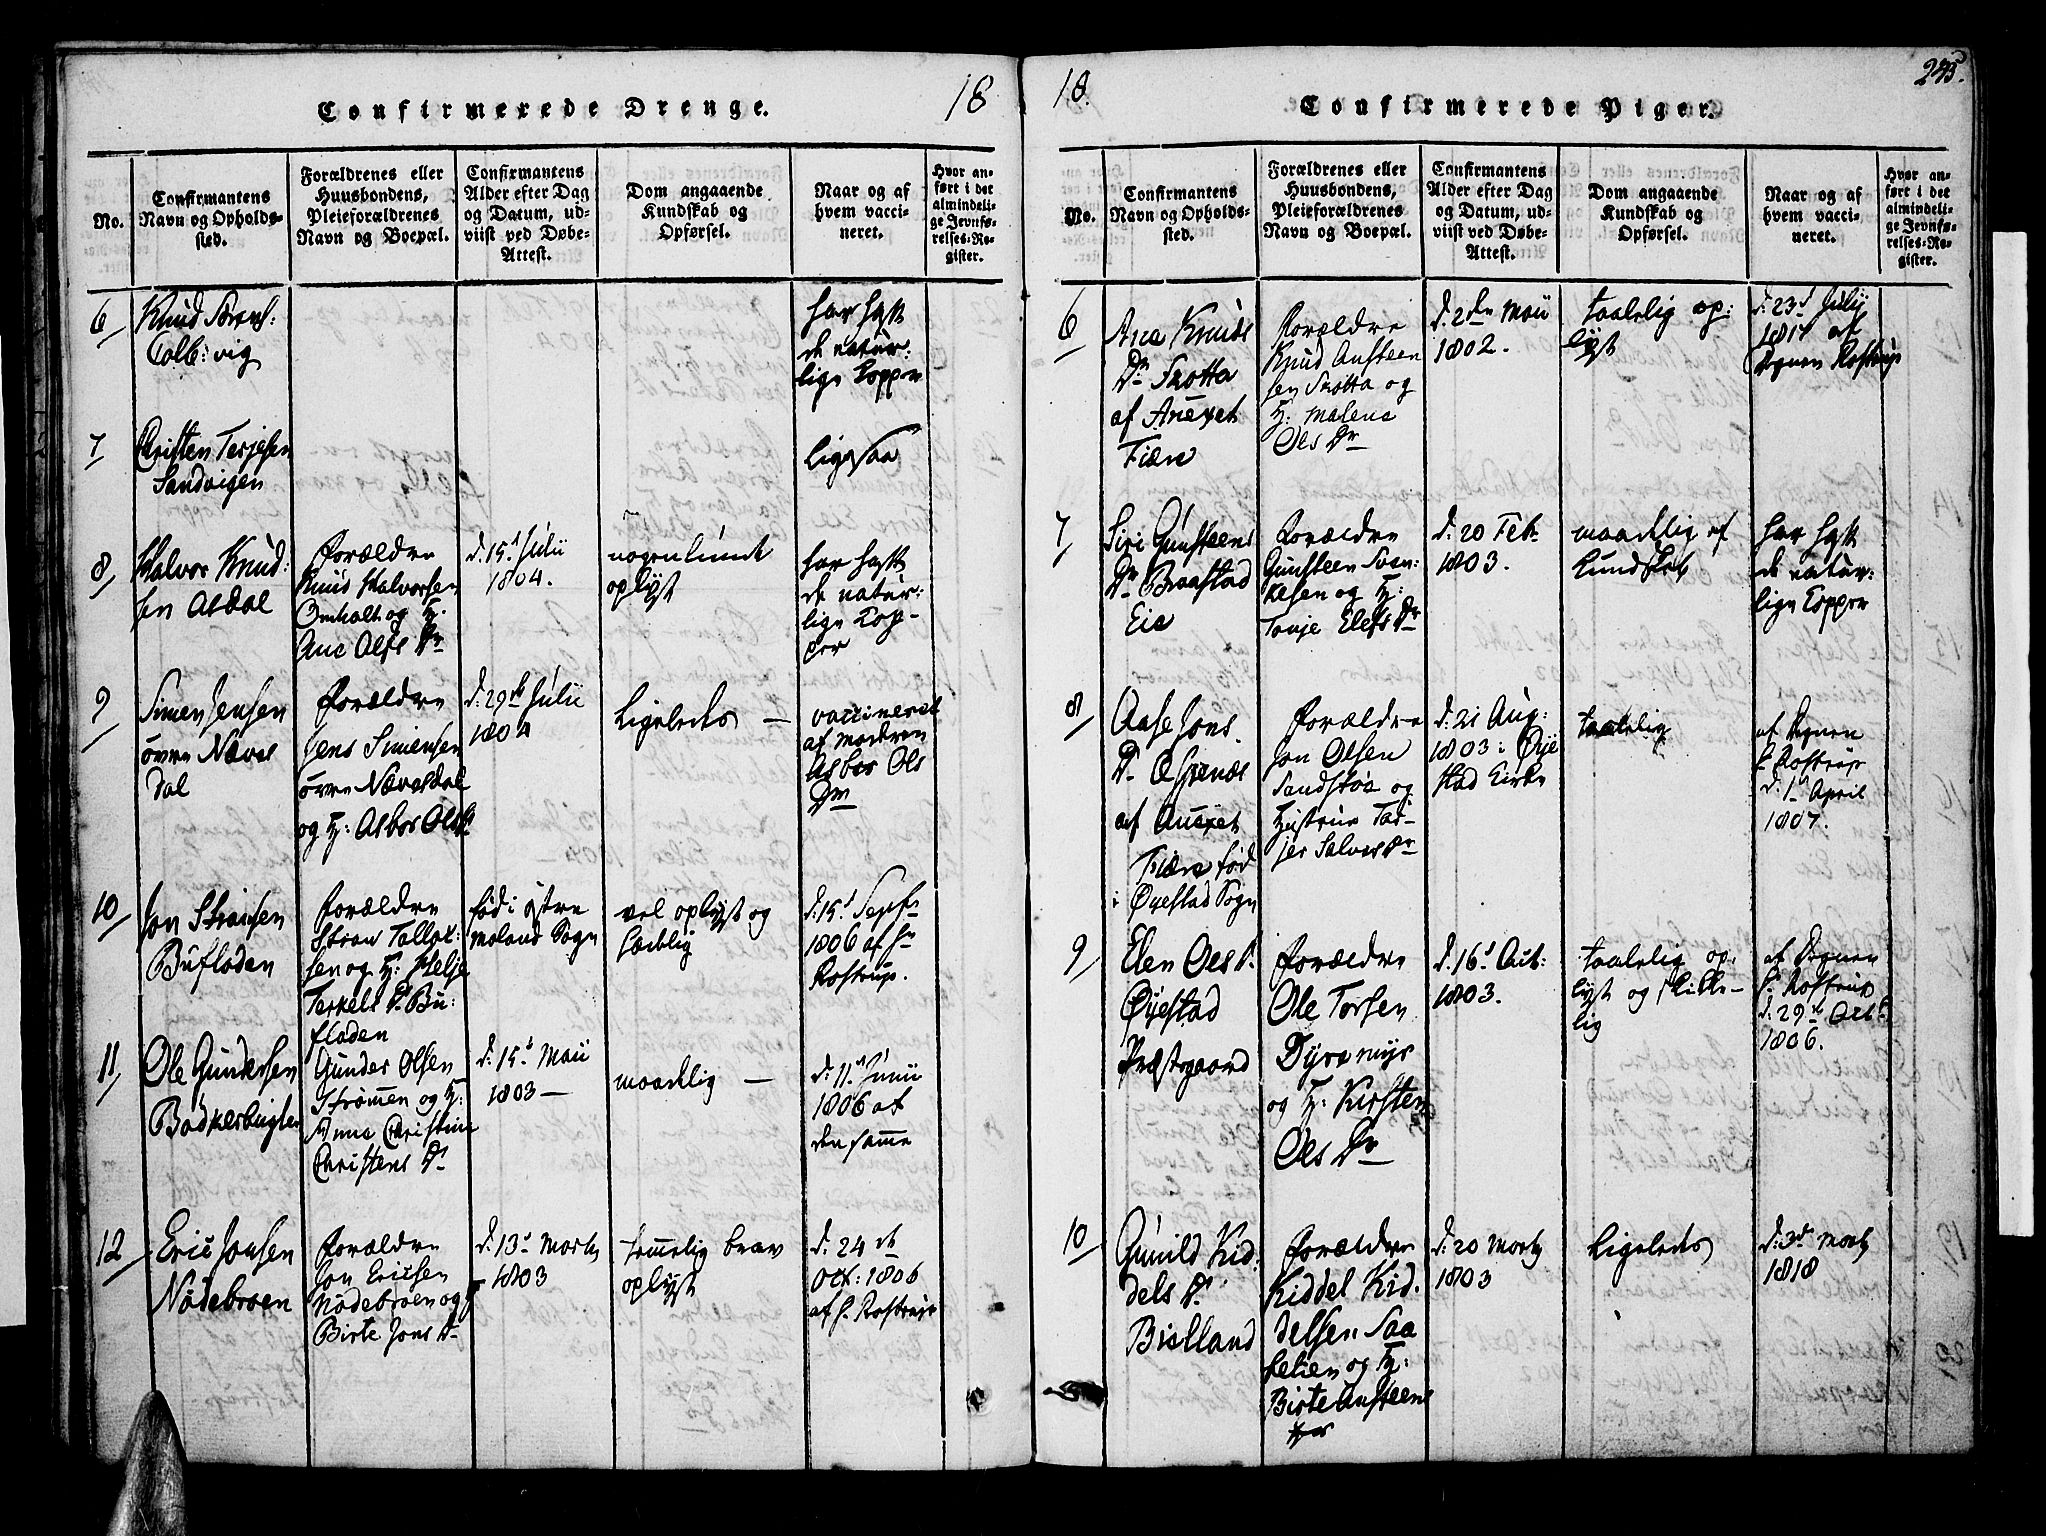 18
Confirmerede Drenge.
No.
Confirmantens
Navn og Opholds-
sted.
Forældrenes eller
Huusbondens,
Pleieforældrenes
Navn og Boepæl.
Confirmantens
Alder efter Dag
og Datum, ud-
viist ved Døbe-
Attest.
Dom angaaende
Kundskab og
Opførsel.
Naar og af
hvem vacci-
neret.
Hvor an-
ført i det
almindeli-
ge Jevnfø-
relses-Re-
gister.
6
Knud
Colb: vig
har haft
de natur:
lige Kopper
7
Christen Terjesen
Sandvigen
Ligesaa
8
Halvor Knud:
sen Asdal
Forældre
Knud Halvorsen
Omholt og H:
Ane Olfs Dr
d: 15d Julii
1804.
nogenlunde
oplyst
har haft
de natur:
lige Kop-
per
9
Simen Jensen
øvre Næves
dal
Forældre
Jens Simensen
øvre Nævesdal
og H: Asbor Ols Dr
d: 29de Julii
1804
Ligeledes —
vaccineret
af Modren
Asbor Ols
Dr
10
Jon Strausen
Bufloden
Forældre
Strau Tallax:
sen og H: Helje
Terkels D: Bu:
floden
fød i østre
Moland Sogn
vel oplyst og
sædelig
d: 15d Septr
1806 af Hr
Rostrup.
11
Ole Gundersen
Bødkerbugten
Gunder Olsen
Strømmen og H:
Anne Christine
Christens Dr
d: 15d Maii
1803 —
maadelig —
d: 11d Junii
1806 af
den samme
12
Eric Jonsen
Nødebroen
Forældre
Jon Ericsen
Nødebroen og H
Birte Jons Dr
d: 13d Marty
1803
temmelig brav
oplyst
d: 24de
Oct: 1806
af H. Rostrup
18.
245.
Confirmerede Piger.
No.
Confirmantens
Navn og Opholds-
sted.
Forældrenes eller
Huusbondens,
Pleieforældrenes
Navn og Boepæl.
Confirmantens
Alder efter Dag
og Datum, ud-
viist ved Døbe-
Attest.
Dom angaaende
Kundskab og
Opførsel.
Naar og af
hvem vacci-
neret.
Hvor an-
ført i det
almindeli-
ge Jevnfø-
relses-Re-
gister.
6
Ane Knuds
Dr Skotta
af Anexet
Fiære
Forældre
Knud Austeen
sen Skotta og
H: Malene
Ols Dr
d: 2den Maii
1802.
taalelig op:
lyst
d: 23d July
1817 af
Degnen Rostrup
7
Siri Gunsteens
Dr Braastad
Eie
Forældre
Gunsteen Sven
kesen og H:
Tonje Elefs Dr
d: 20 Feb:
1803.
maadelig af
Kundskab
har haft
de natur:
lige Kopper
8
Aase Jons
Dr Espenæs
af Anexet
Fiære fød
i Øyestad Sogn
Forældre
Jon Olsen
Sandstøa og
Hustrue Tar-
jer Salves Dr
d: 21 Aug:
1803 i Øye
stad Kirke
taalelig
af Degnen
H Rostrup
d: 1d April
1807.
9
Elen Oles D.
Øyestad
Præstegaard
Forældre
Ole Torsen
Dyremyr
og H. Kirsten
Oles Dr
d: 16d Oct:
1803.
taalelig op-
lyst og skikke-
lig
af Degnen
H. Rostrup
d: 29d Octbr
1806.
10
Gunild Kid:
dels D.
Bielland
Forældre
Kiddel Kid.
delsen Saa
selien og H:
Birte Austeens
Dr
d: 20 Marty
1803
Ligeledes
d: 3d Marty
1818